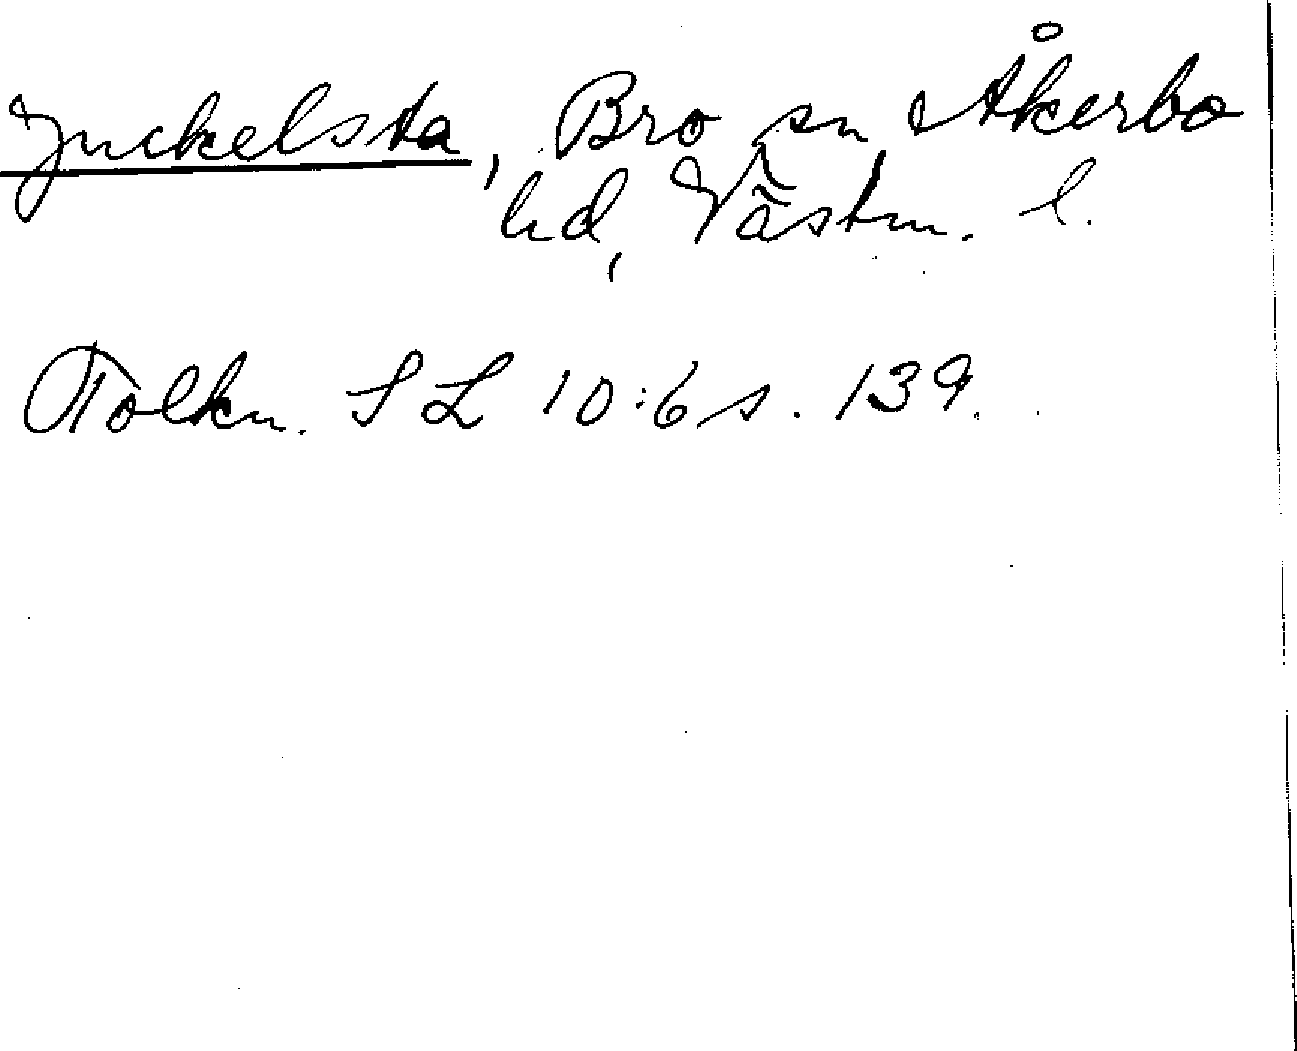 Juckelsta, Bro sn Åkerbo
hd, Västm. l.
Tolkn. SL 10:6 s. 139.